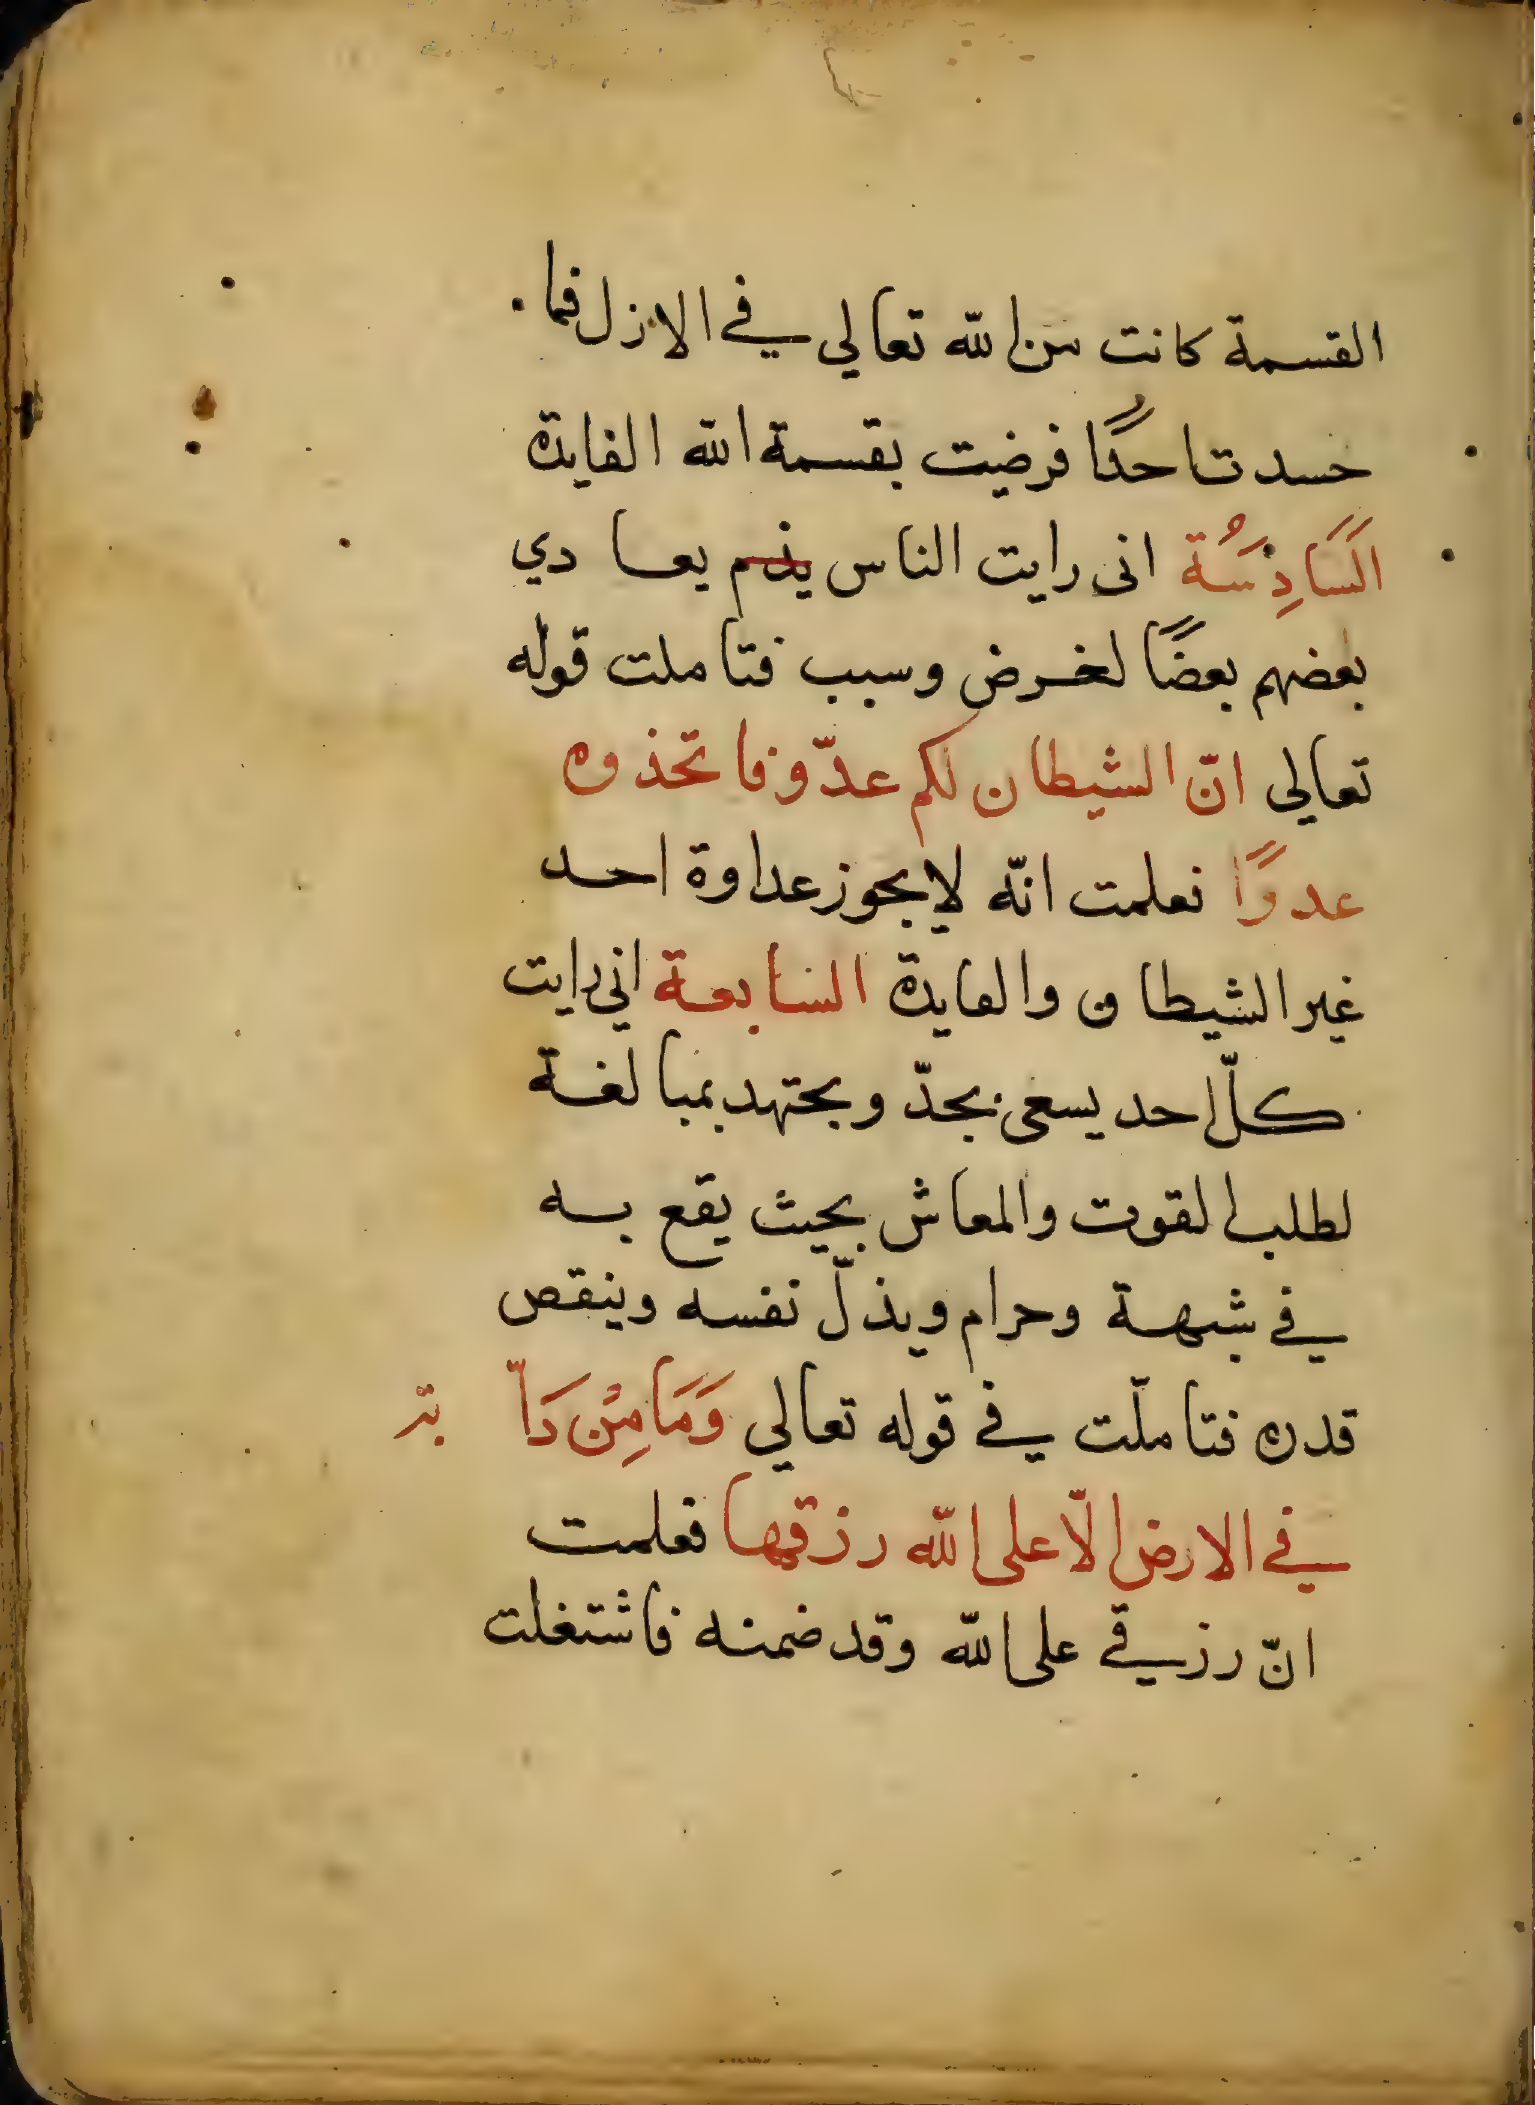 القسمة كانت من الله تعالي في الازل فما
حسدت احدًا فرضيت بقسمة الله الفايدة
السَّادِسَةُ انى رايت الناس يذم يعادي
بعضهم بعضًا لغرض وسبب فتاملت قوله
تعالي انّ الشيطان لكم عدّو فاتخذوه
عدوًا فعلمت انّه لا يجوز عداوة احد
غير الشيطان والفايدة السابعة اني رايت
كلّ احد يسعى بجدّ ويجتهد بمبالغة
لطلب القوت والمعاش بحيث يقع به
في شبهة وحرام ويذلّ نفسه وينقص
قدره فتاملّت في قوله تعالي وَمَا مِنْ دَآبّة
في الارض الّا على الله رزقها فعلمت
انّ رزقي على الله وقد ضمنه فاشتغلت